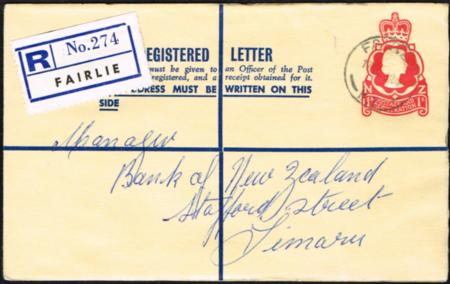 R No. 274
FAIRLIE
REGISTERED LETTER
must be given to an Officer of the Post
registered, and a receipt obtained for it.
MUST BE WRITTEN ON THIS
SIDE
N Z
Manager
Bank of New Zealand
Stafford street
Timaru